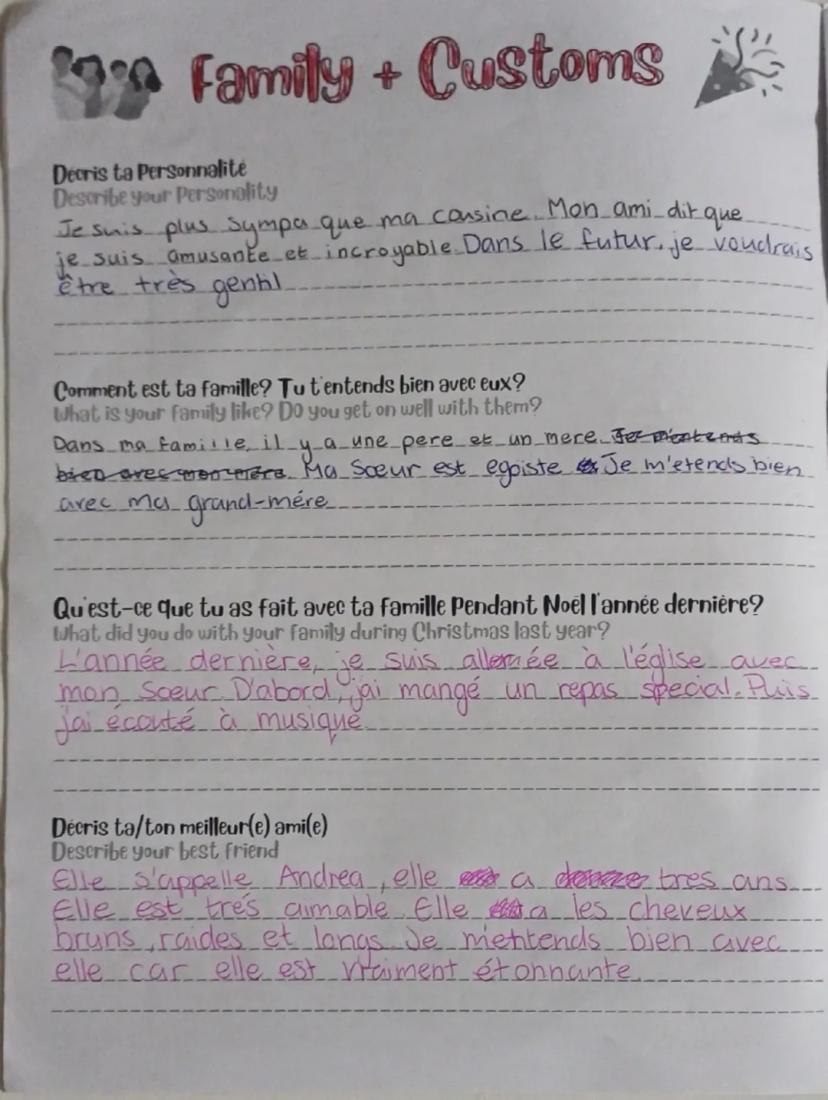 Family + Customs
Décris ta Personnalité
Describe your Personality
Je suis plus sympa que ma cousine. Mon ami dit que
je suis amusante et incroyable Dans le futur, je voudrais
être très gentil
Comment est ta famille? Tu t'entends bien avec eux?
What is your family like? Do you get on well with them?
Dans ma famille, il y a une pere et un mere. Je m'entends
bien avec mon mère. Ma Sœur est egoiste Je m'etends bien
avec ma grand-mére
Qu'est-ce que tu as fait avec ta famille Pendant Noël l'année dernière?
What did you do with your family during Christmas last year?
L'année dernière, je suis allée à l'église avec
mon Sœur D'abord, j'ai mangé un repas special. Puis
j'ai écouté à musique
Décris ta/ton meilleur(e) ami(e)
Describe your best friend
Elle s'appelle Andrea, elle a tres ans
Elle est trés aimable Elle a les cheveux
bruns, raides et longs Je m'entends bien avec
elle car elle est vraiment étonnante